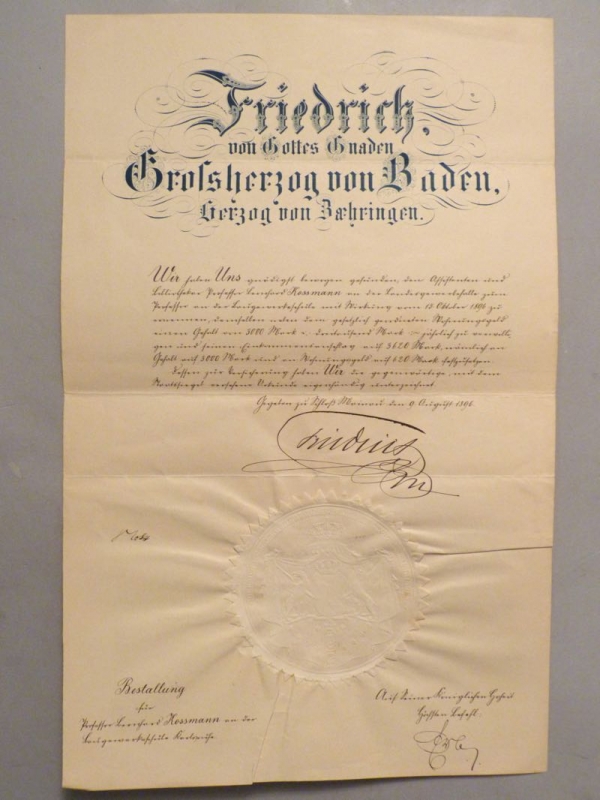 Friedrich,
von Gottes Gnaden
Grossherzog von Baden,
Herzog von Zæhringen.
Wir haben Uns gnädigst bewogen gefunden, den Assistenten und
Professor Bernhard Kossmann an der Landesgewerbehalle zum
Professor an der Baugewerkeschule mit Wirkung vom 15 Oktober 1896 zu
ernennen, demselben neben dem gesetzlich geordneten Wohnungsgeld
einen Gehalt von 3000 Mark = dreitausend Mark = jährlich zu verwilli-
gen und seinen Einkommensanschlag auf 3620 Mark, nämlich an
Gehalt auf 3000 Mark und an Wohnungsgeld auf 620 Mark festzusetzen.
Dessen zur Versicherung haben Wir die gegenwärtige, mit dem
Staatssiegel versehene Urkunde eigenhändig unterzeichnet.
Gegeben zu Schloß Mainau den 9 August 1896
Friedrich
Bestallung
für
Professor Bernhard Kossmann an der
Baugewerkeschule Karlsruhe
Auf Seiner Königlichen Hoheit
höchsten Befehl.